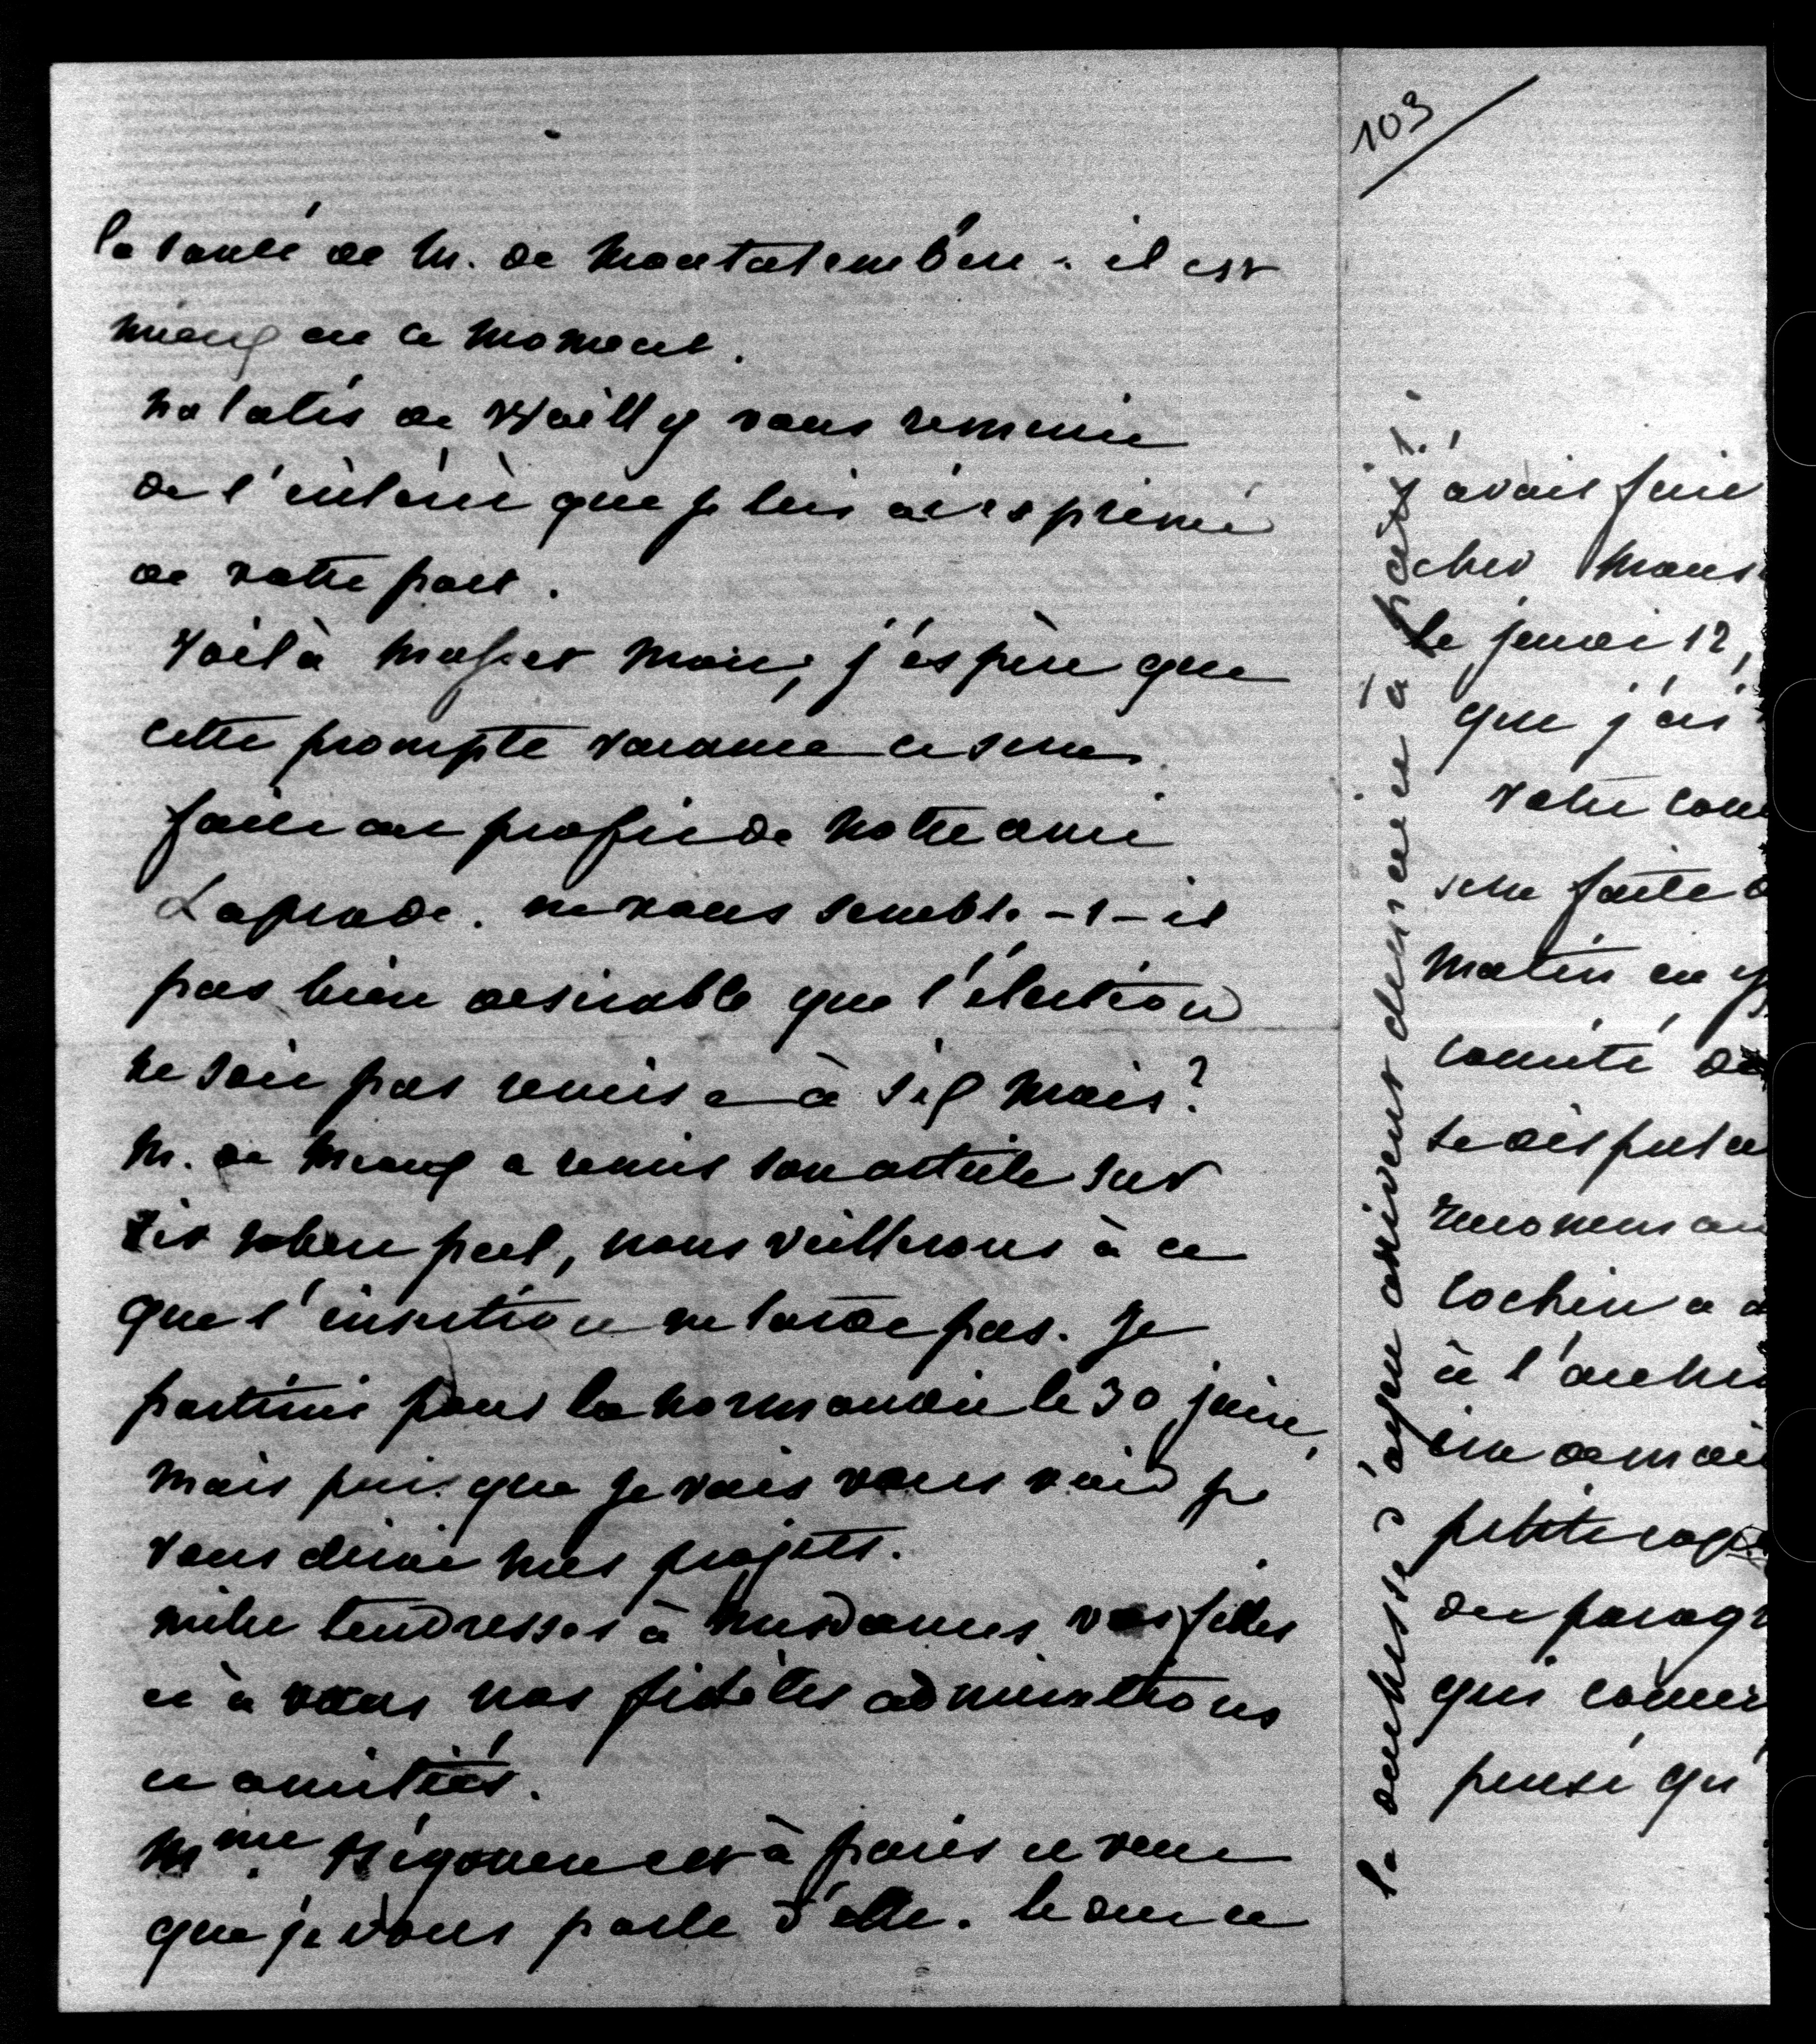 la santé de M. de Montalembert. il est
mieux en ce moment.
Natalis de Wailly vous remercie
de l'intérêt que je lui ai exprimé
de votre part.
Voilà Musset mort, j'espère que
cette prompte vacance sera
faite au profit de notre ami
Laprade. ne vous semble-t-il
pas bien desirable que l'élection
ne soit pas remise à six mois?
M. de Meaux a remis son article sur
Sir Robert peel, nous veillerons à ce
que l'insertion ne tarde pas. Je
partirai pour la normandie le 30 juin,
mais puisque je vais vous voir je
vous dirai mes projets.
mille tendresses à mesdames vos filles
et à vous nos fidèles admirations
et amitiés.
Mme. est à paris et veut
que je vous parle d'elle. le duc et
la duchesse d'ayen arrivent demain à paris.
103
j'avais fait
cher Mons
le jeudi 12,
que j'ai
votre
sera faite
matin en
comité de
se disputa
cochin a
à l'
petite
du parag
qui
pensé qu'